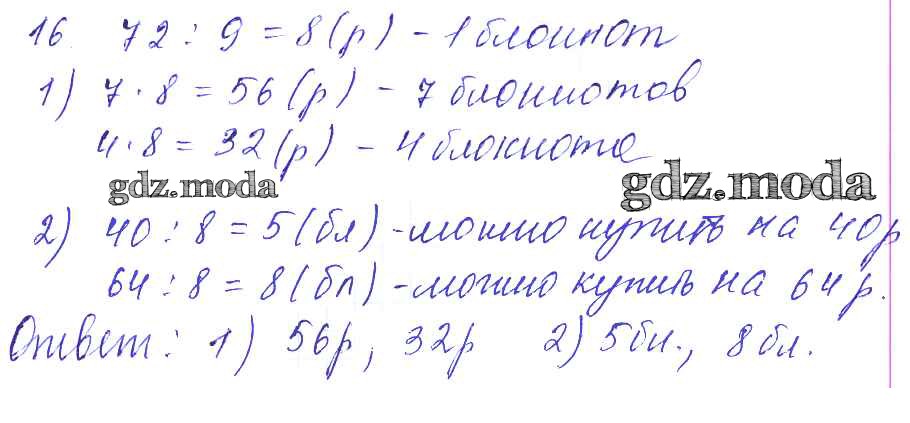 16. 72 : 9 = 8 (р) - 1 блокнот
1) 7 · 8 = 56 (р) - 7 блокнотов
4 · 8 = 32 (р) - 4 блокнота
gdz.moda gdz.moda
2) 40 : 8 = 5 (бл) - можно купить на 40 р
64 : 8 = 8 (бл) - можно купить на 64 р.
Ответ: 1) 56р, 32р 2) 5бл., 8бл.